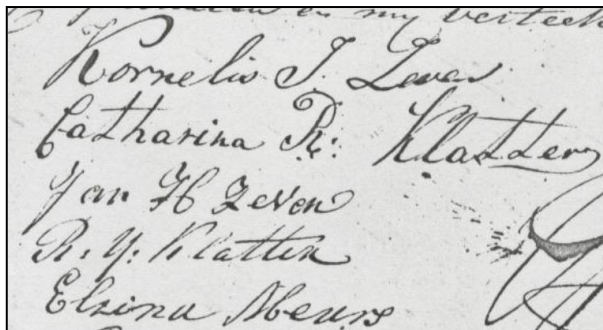 en my verteek
Kornelis J. Zeven
Catharina R: Klatter
Jan H Zeven
R. Y. Klatter
Elzina Meurs